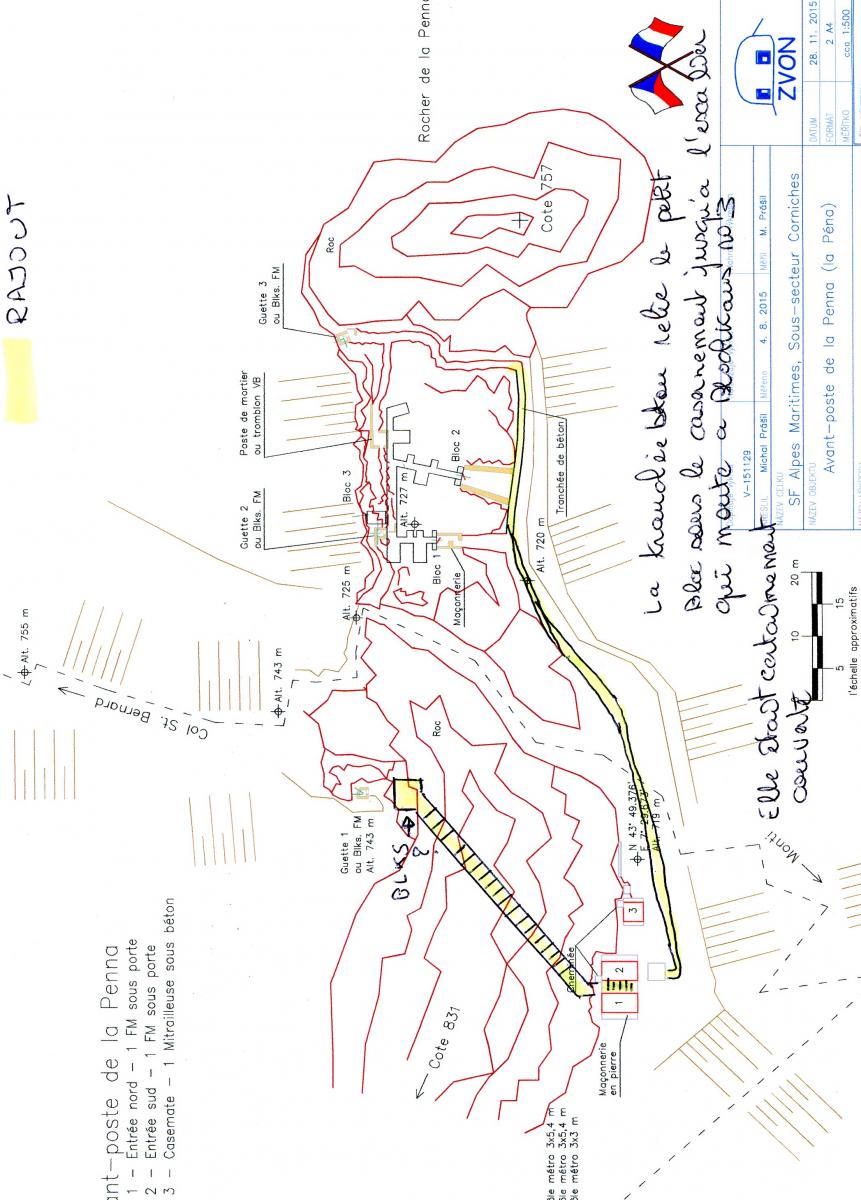 RAJOUT
Rocher de la Penna
Cote 757
Roc
Guette 3
ou Blks. FM
Poste de mortier
ou tromblon VB
Bloc 3
Guette 2
ou Blks. FM
Bloc 2
Alt. 727 m
Bloc 1
Maçonnerie
Tranchée de béton
Alt. 720 m
Alt. 725 m
Alt. 755 m
Col St. Bernard
Alt. 743 m
Roc
Guette 1
ou Blks. FM
Alt. 743 m
BLKS
?
Cote 831
Cheminée
1
2
3
Maçonnerie
en pierre
N 43° 49.376'
Alt. 719 m
Monti
ant-poste de la Penna
1 - Entrée nord - 1 FM sous porte
2 - Entrée sud - 1 FM sous porte
3 - Casemate - 1 Mitrailleuse sous béton
ôle métro 3x5,4 m
ôle métro 3x5,4 m
ôle métro 3x3 m
La tranchée béton relie le petit
Bloc sous le casernement jusqu'a l'escalier
qui monte a Blockhaus no 3
Elle était certainement
couverte
20 m
10
15
5
l'échelle approximatifs
ZVON
DATUM
28. 11. 2015
FORMÁT
2 A4
MĚŘÍTKO
cca 1:500
V-151129
Michal Prášil
Měřeno
4. 8. 2015
Měřil
M. Prášil
NÁZEV CELKU
SF Alpes Maritimes, Sous-secteur Corniches
NÁZEV OBJEKTU
Avant-poste de la Penna (la Péna)